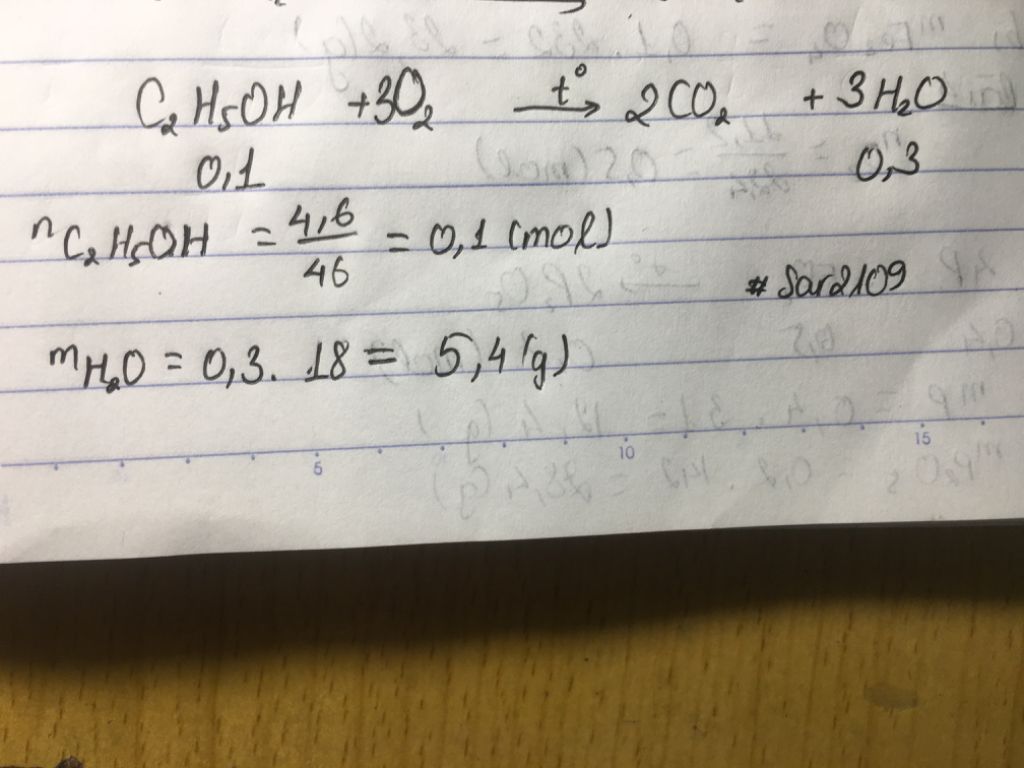 C₂H₅OH +3O₂ t° → 2CO₂ + 3H₂O
0,1 0,3
nC₂H₅OH = 4,6/46 = 0,1 (mol)
# Sar2109
mH₂O = 0,3. 18 = 5,4 (g)
5 10 15